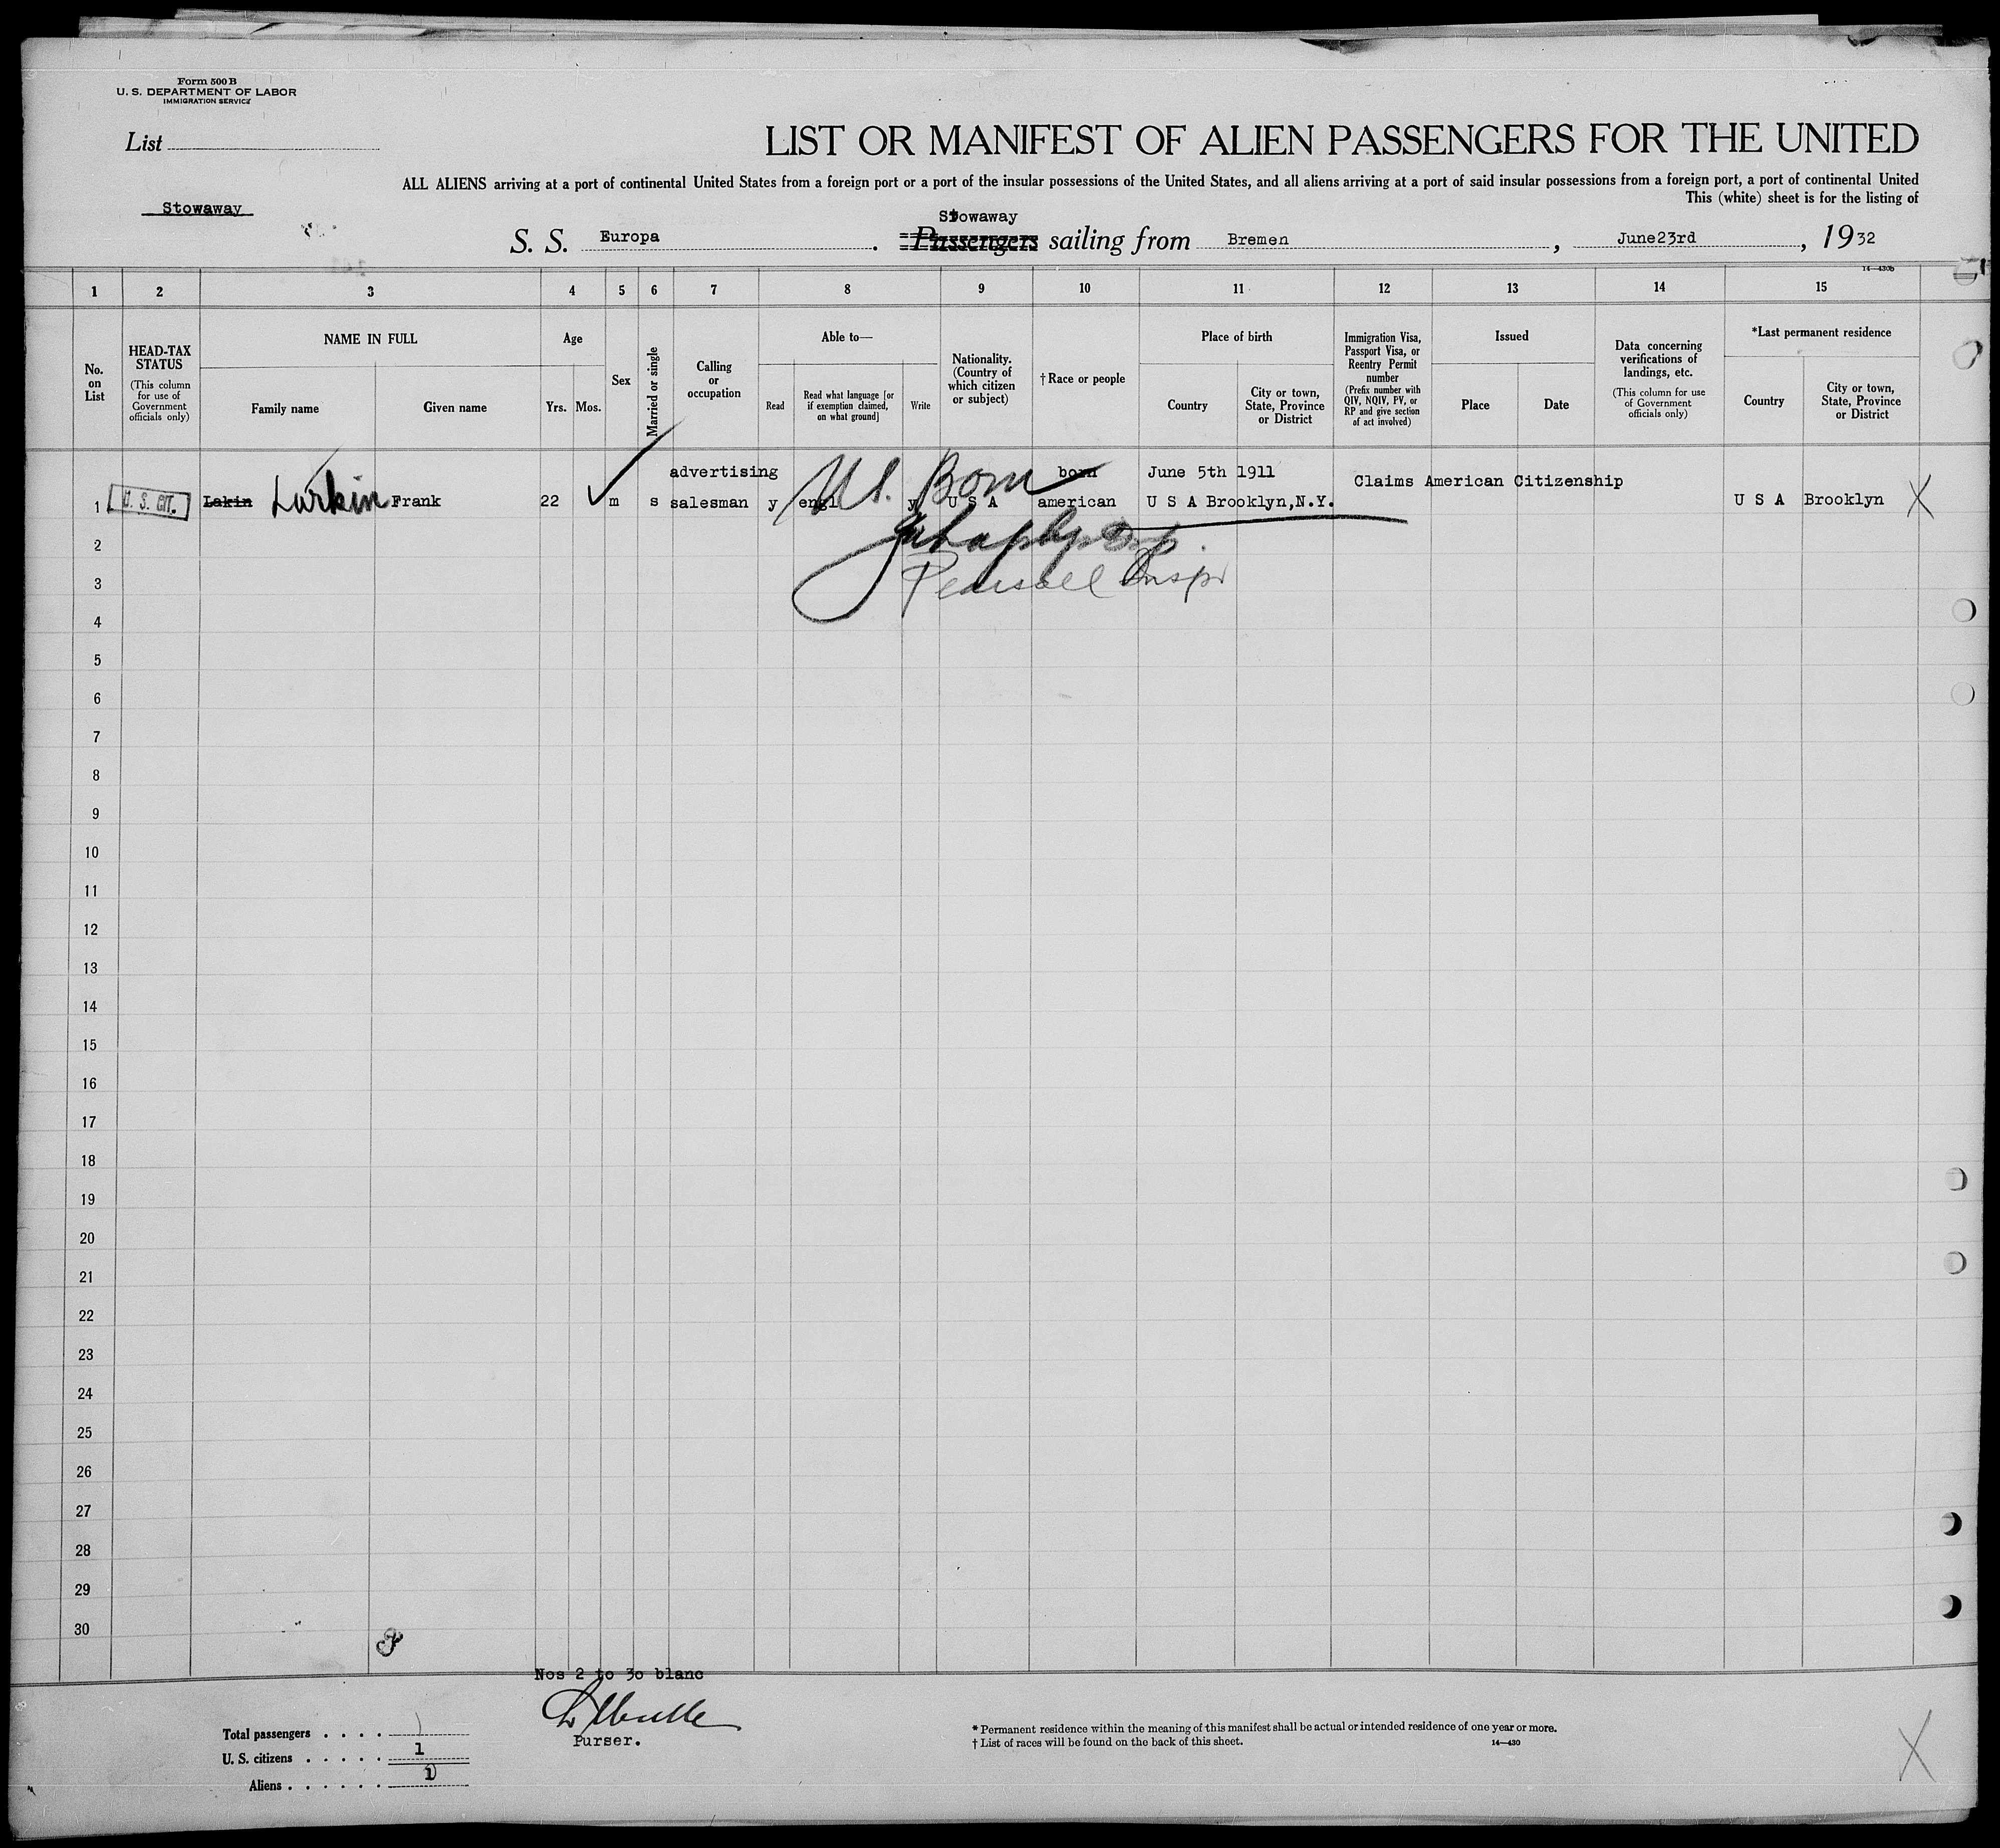 Form 500 B
U. S. DEPARTMENT OF LABOR
IMMIGRATION SERVICE
List
LIST OR MANIFEST OF ALIEN PASSENGERS FOR THE UNITED
ALL ALIENS arriving at a port of continental United States from a foreign port or a port of the insular possessions of the United States, and all aliens arriving at a port of said insular possessions from a foreign port, a port of continental United
This (white) sheet is for the listing of
Stowaway
Stowaway
S. S. Europa . Passengers sailing from Bremen , June23rd , 1932
14—430b
1 2 3 4 5 6 7 8 9 10 11 12 13 14 15
No. on List
HEAD-TAX STATUS
(This column for use of Government officials only)
NAME IN FULL
Family name
Given name
Age
Yrs.
Mos.
Sex
Married or single
Calling or occupation
Able to—
Read
Read what language [or if exemption claimed, on what ground]
Write
Nationality. (Country of which citizen or subject)
† Race or people
Place of birth
Country
City or town, State, Province or District
Immigration Visa, Passport Visa, or Reentry Permit number
(Prefix number with QIV, NQIV, PV, or RP and give section of act involved)
Issued
Place
Date
Data concerning verifications of landings, etc.
(This column for use of Government officials only)
*Last permanent residence
Country
City or town, State, Province or District
advertising born June 5th 1911
US. Born
Claims American Citizenship
1 U. S. CIT. Lakin Larkin Frank 22 m s salesman y engl y U S A american U S A Brooklyn,N.Y. U S A Brooklyn X
2
Pearsall Inspr
3
4
5
6
7
8
9
10
11
12
13
14
15
16
17
18
19
20
21
22
23
24
25
26
27
28
29
30
Nos 2 to 30 blanc
Purser.
Total passengers . . . .
U. S. citizens . . . . . 1
Aliens . . . . . .
* Permanent residence within the meaning of this manifest shall be actual or intended residence of one year or more.
† List of races will be found on the back of this sheet.
14—430
X